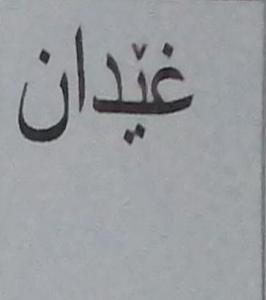 غيدان